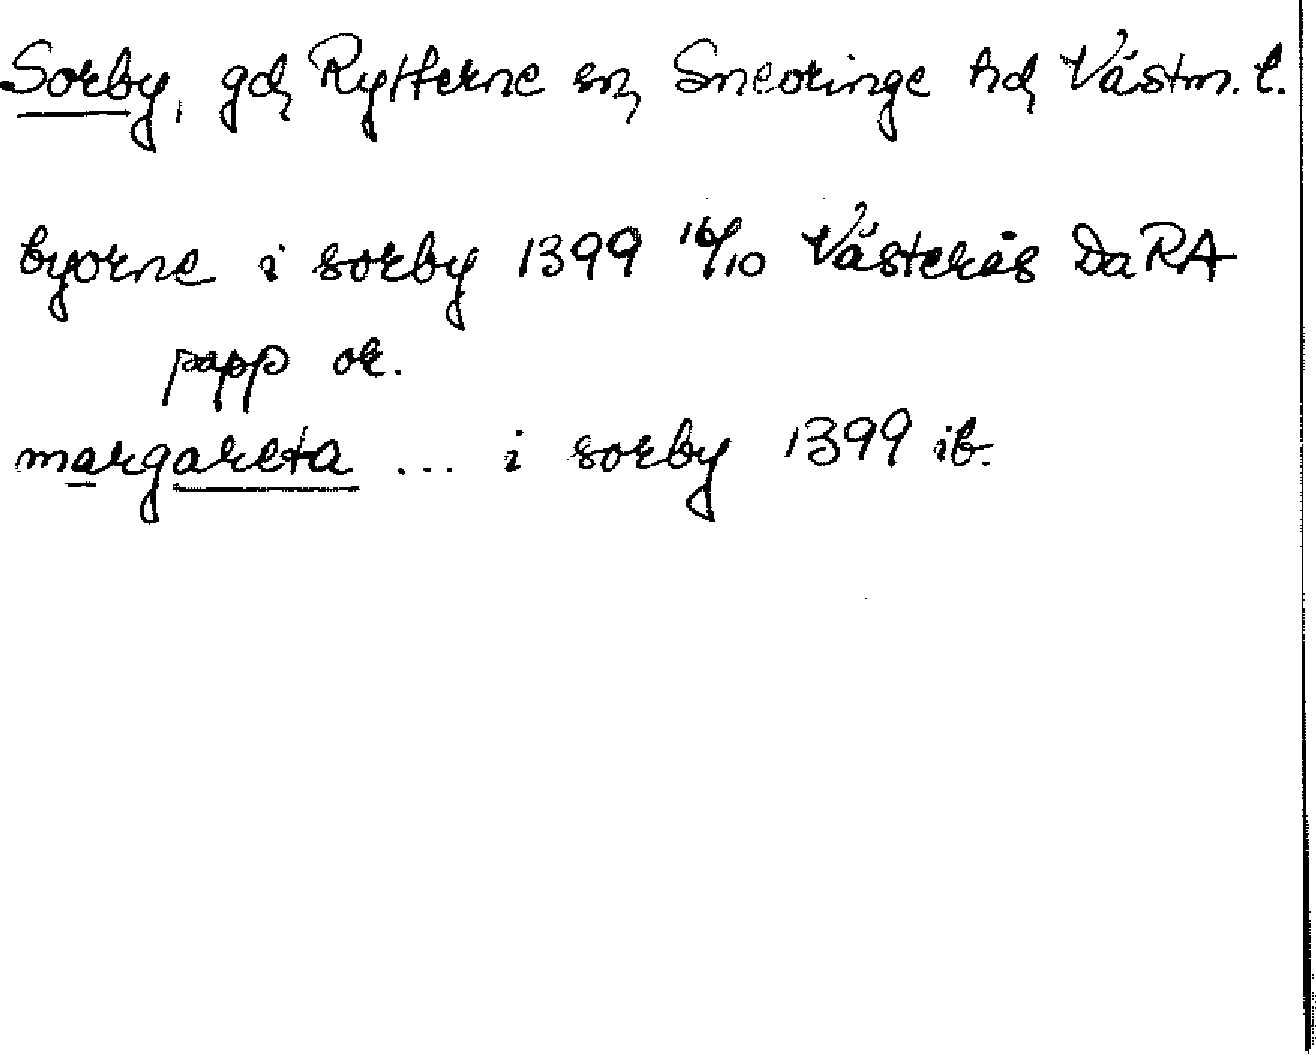 Sorby, gd, Rytterne sn, Snevringe hd, Västm. l.
byorne i sorby 1399 16/10 Västerås Da RA
papp or.
margareta ... i sorby 1399 ib.